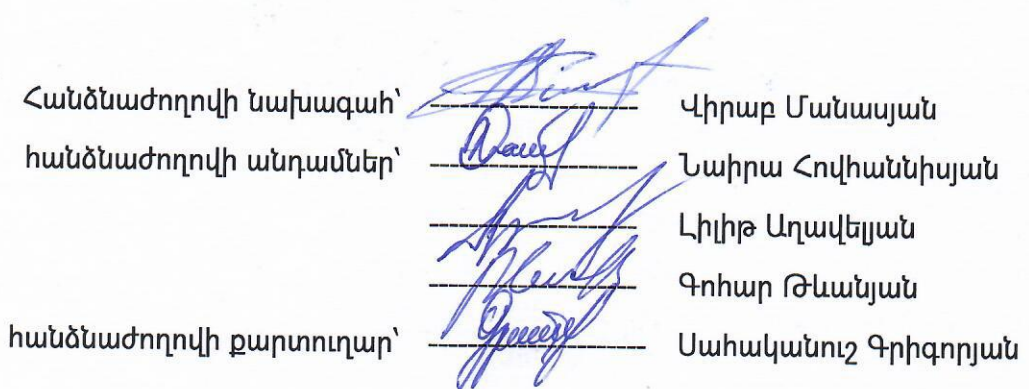 Հանձնաժողովի նախագահ՝ Վիրաբ Մանասյան
հանձնաժողովի անդամներ՝ Նաիրա Հովհաննիսյան
Լիլիթ Աղավելյան
Գոհար Թևանյան
հանձնաժողովի քարտուղար՝ Սահականուշ Գրիգորյան